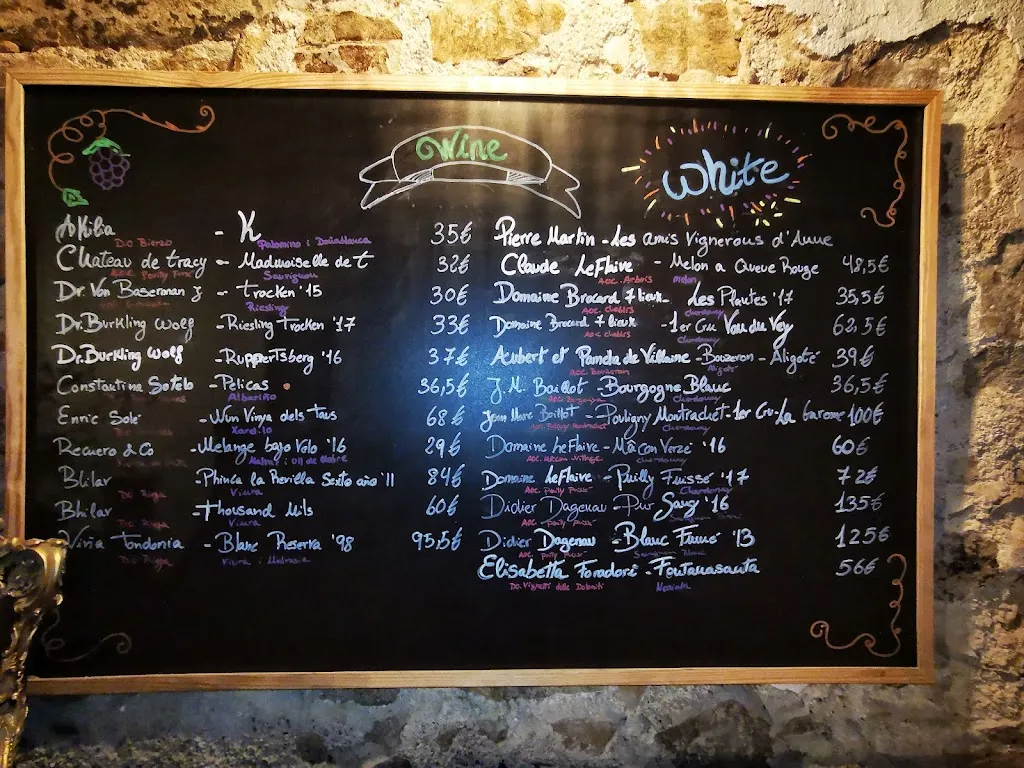 Wine
White
Akilia - K 35€
D.O Bierzo Palomino i Doña blanca
Chateau de tracy - Madmoiselle de t 32€
AOC. Pouilly Fumé Sauvignon
Dr. Von Baserman J - trocken '15 30€
Riesling
Dr. Burkling Wolf - Riesling Trocken '17 33€
Dr. Burkling Wolf - Ruppertsberg '16 37€
Constantina Sotelo - Pelicas 36,5€
Albariño
Enric Solé - Wun Vinya dels taus 68€
Xarel.lo
Recuero & Co - Melange bajo Velo '16 29€
Blilar - Phinca la Revilla Sexto año '11 84€
D.O Rioja Viura
Bhilar - Thousand Mils 60€
D.O Rioja Viura
Viña Tondonia - Blanc Reserva '98 95,5€
D.O Rioja Viura i Malvasia
Pierre Martin - Les amis Vignerous d'Anne
Claude LeFlaive - Melon a Queue Rouge 48,5€
AOC. Arbois Melon
Domaine Brocard 7 lieux - Les Plautes '17 35,5€
AOC Chablis Chardonnay
Domaine Brocard 7 lieux - 1er Cru Vau du Vey 62,5€
AOC Chablis Chardonnay
Aubert et Pamela de Villaine - Bouzeron - Aligoté 39€
AOC. Bouzeron Aligoté
J.M. Boillot - Bourgogne Blanc 36,5€
Chardonnay
Jean Marc Boillot - Pouligny Montrachet - 1er Cru - La Garenne 100€
Chardonnay
Domaine LeFlaive - Mâcon Verzé '16 60€
AOC. Macon-Village Chardonnay
Domaine Leflaive - Puilly Fuissé '17 72€
AOC. Pouilly Fuissé Chardonnay
Didier Dagenau - Pur Sang '16 135€
Didier Dagenau - Blanc Fumé '13 125€
Sauvignon Blanc
Elisabetta Foradori - Fontanasanta 56€
D.O. Vigneti delle Dolomiti Nosiola